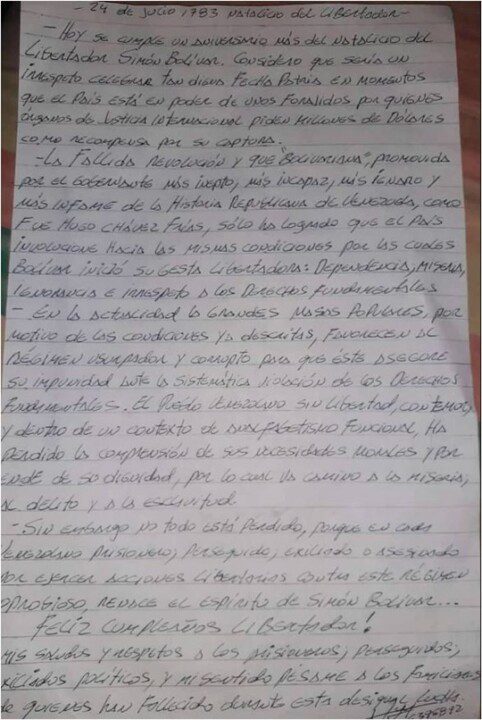 - 24 de Julio 1783 Natalicio del Libertador -
- Hoy se cumple un aniversario más del Natalicio del
Libertador Simón Bolívar. Considero que sería un
irrespeto celebrar tan digna Fecha Patria en momentos
que el País está en poder de unos Forajidos por quienes
órganos de Justicia Internacional piden millones de Dólares
como recompensa por su captura.
- La Fallida Revolución y que "Bolivariana", promovida
por el Gobernante más inepto, más incapaz, más ignaro y
más infame de la Historia Republicana de Venezuela, como
fue Hugo Chávez Frías, sólo ha logrado que el País
involucione hacia las mismas condiciones por las cuales
Bolívar inició su gesta libertadora: Dependencia, miseria,
ignorancia e irrespeto a los Derechos Fundamentales
- En la actualidad las grandes masas populares, por
motivo de las condiciones ya descritas, favorecen al
Régimen usurpador y corrupto para que éste asegure
su impunidad ante la sistemática violación de los Derechos
Fundamentales. El Pueblo Venezolano sin libertad, con temor
y dentro de un contexto de analfabetismo funcional, ha
perdido la comprensión de sus necesidades morales y por
ende de su dignidad, por lo cual va camino a la miseria,
al delito y a la esclavitud
- Sin embargo no todo está perdido, porque en cada
Venezolano prisionero, perseguido, exiliado o asesinado
por ejercer acciones libertarias contra este Régimen
oprobioso, renace el espíritu de Simón Bolívar...
Feliz cumpleaños Libertador!
Mis saludos y respetos a los prisioneros, perseguidos,
exiliados políticos, y mi sentido pésame a los familiares
de quienes han fallecido durante esta desigual lucha.